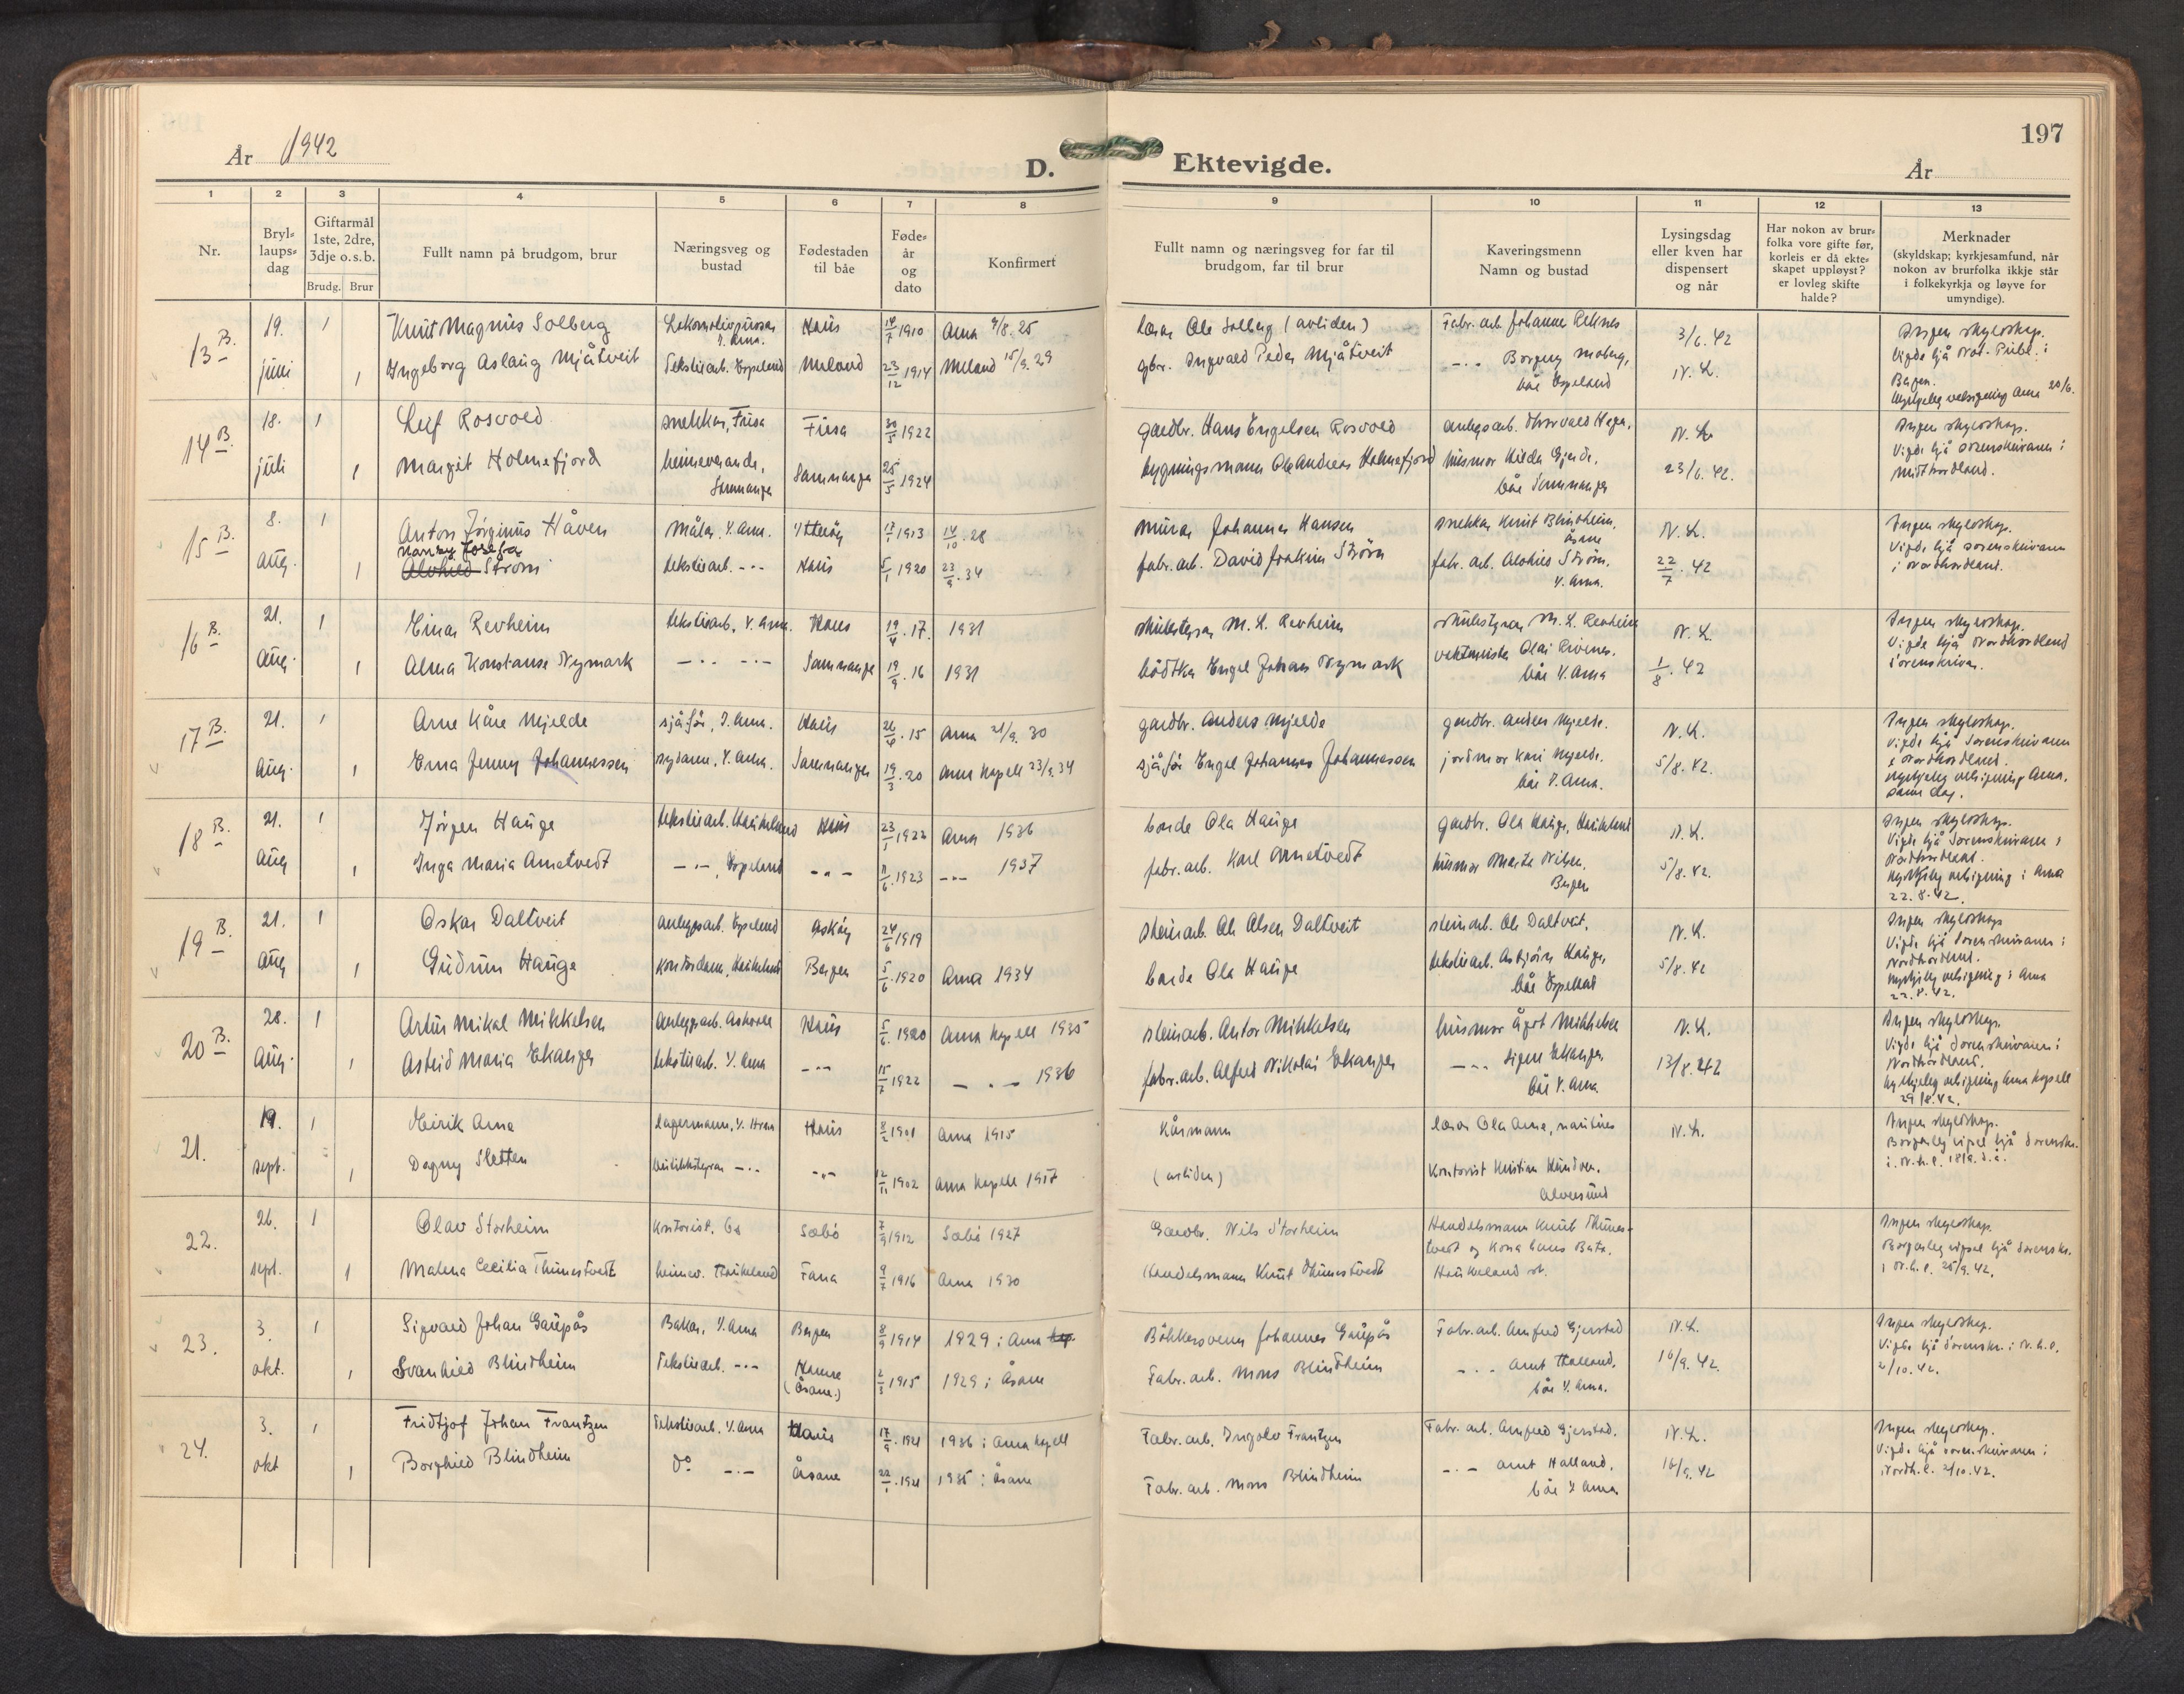 197
År 1942
D. Ektevigde.
År
1 2 3 4 5 6 7 8 9 10 11 12 13
Nr.
Bryllaupsdag
Giftarmål 1ste, 2dre, 3dje o.s.b.
Brudg. Brur
Fullt namn på brudgom, brur
Næringsveg og bustad
Fødestaden til båe
Fødeår og dato
Konfirmert
Fullt namn og næringsveg for far til brudgom, far til brur
Kaveringsmenn Namn og bustad
Lysingsdag eller kven har dispensert og når
Har nokon av brurfolka vore gifte før, korleis er då ekteskapet uppløyst? er lovleg skifte halde?
Merknader (skyldskap; kyrkjesamfund, når nokon av brurfolka ikkje står i folkekyrkja og løyve for umyndige).
13 B. 19. 1 Knut Magnus Solberg Haus 14/7 1910 Arna 9/8. 25 Ole Solberg (avliden) Fabr. arb. Johanne Reknes 3/6. 42 Ingen skyldskap.
juni 1 Ingeborg Aslaug Mjåtveit Tekstilarb. Espeland Meland 23/12 1914 Meland 15/9. 29 gbr. Ingvald Peder Mjåtveit -..- Borgny Moberg, båe Espeland N. L. Vigde hjå Not. Publ. i Bergen. velsigning Arna 20/6.
14 B. 18. 1 Leif Rosvold snekkar, Fusa Fusa 30/5 1922 gardbr. Hans Engelsen Rosvold anlegsarb. Thorvald Haga, N. L. Ingen skyldskap.
juli 1 Margit Holmefjord heimeverande, Samnanger Samnanger 25/5 1924 bygningsmann Ole Andreas Holmefjord husmor Hilda Gjerde, båe Samnanger 23/6. 42. Vigde hjå sorenskrivaren i Midthordland.
15 B. 8. 1 Anton Jørginus Håven Målar. Y. Arna. Ytterøy 17/7 1913 14/10. 28 murar Johannes Hansen snekkar Knut Blindheim, Åsane N. L. Ingen skyldskap.
aug. 1 Nanny Josefa Strøm tekstilarb. -..- Haus 5/1 1920 23/9. 34 fabr. arb. David Joakim Strøm fabr. arb. Alvhild Strøm. Y. Arna. 22/7. 42 Vigde hjå sorenskrivaren i Nordhordland.
16 B. 21. 1 Einar Revheim tekstilarb. Y. Arna. Haus 19/4. 17. 1931 skulestyrar M. L. Revheim skulestyrar M. L. Revheim N. L. Ingen skyldskap.
aug. 1 Alma Konstanse Nymark -..- -..- Samnanger 19/9. 16 1931 bødtkar Engel Johan Nymark vektmeister Olai Rivenes. båe Y. Arna 1/8. 42 Vigde hjå Nordhordland sorenskrivar.
17 B. 21. 1 Arne Kåre Mjelde sjåfør, I. Arna. Haus 26/4. 15 Arna 21/9. 30 gardbr. Anders Mjelde gardbr. Anders Mjelde. N. L. Ingen skyldskap.
aug. 1 Erna Jenny Johannessen sydame, Y. Arna. Samnanger 19/3. 20 Arna kapell 23/9. 34 sjåfør Engel Johannes Johannessen jordmor Kari Mjelde. båe I. Arna. 5/8. 42. Vigde hjå Sorenskrivaren i Nordhordland. kyrkjeleg velsigning Arna, same dag.
18 B. 21. 1 Jørgen Hauge tekstilarb. Haukeland Haus 23/1 1922 Arna 1936 Ola Hauge gardbr. Ola Hauge, Haukeland N. L. Ingen skyldskap.
aug 1 Inga Maria Arnetvedt -..-, Espeland -..- 11/6. 1923 -..- 1937 fabr. arb. Karl Arnetvedt husmor Marta Nilsen, Bergen 5/8. 42. Vigde hjå Sorenskrivaren i Nordhordland. kyrkjeleg velsigning i Arna 22. 8. 42.
19 B. 21. 1 Oskar Daltveit anleggsarb. Espeland Askøy 24/6 1919 steinarb. Ole Olsen Daltveit steinarb. Ole Daltveit. N. L. Ingen skyldskap
aug 1 Gudrun Hauge kontordame, Haukeland Bergen 5/6. 1920 Arna 1934 Ola Hauge tekstilarb. Asbjørn Hauge, båe Espeland 5/8. 42 Vigde hjå Sorenskrivaren i Nordhordland. kyrkjeleg velsigning i Arna 22. 8. 42.
20 B. 28. 1 Artur Mikal Mikkelsen anleggsarb. Haus 5/6. 1920 Arna kapell 1935 steinarb. Antor Mikkelsen husmor Ågot Mikkelsen N. L. Ingen skyldskap.
aug. 1 Astrid Maria Ekanger tekstilarb. Y. Arna -..- 15/7 1922 -..- 1936 fabr. arb. Alfred Nikolai Ekanger -..- Signe Ekanger. båe Y. Arna 13/8. 42 Vigde hjå Sorenskrivaren i Nordhordland. kyrkjeleg velsigning Arna kapell 29/8. 42.
21. 19. 1 Eirik Arna Lagermann, Y. Arna Haus 8/2 1901 Arna 1915 Kårmann Ola Arna, N. L. Ingen skyldskap.
sept. 1 Dagny Sletten -..- -..- 12/11 1902 Arna kapell 1917 (avliden) Kontorist Kristian Alversund Borgarleg vigsel hjå Sorenskr. i N.h.l. 18/9. d.å.
22. 26. 1 Olav Storheim Kontorist. Sæbø 7/9 1912 Sæbø 1927 Gardbr. Nils Storheim Handelsmann Knut Thunestvedt og kona hans Ingen skyldskap.
sept. 1 Malena Cecilia Thunestvedt heimev. Haukeland Fana 9/7 1916 Arna 1930 Handelsmann Knut Thunestvedt Haukeland st. Borgarleg vigsel hjå Sorenskr. i N.h.l. 25/9. 42.
23. 3. 1 Sigvald Johan Gaupås Bakar, Y. Arna Bergen 8/9 1914 1929 i Arna Bøkkersvenn Johannes Gaupås Fabr. arb. Arnfred Gjerstad N. L. Ingen skyldskap.
okt. 1 Svanhild Blindheim Tekstilarb. -..- Hamre (Åsane.) 2/3 1915 1929 i Åsane Fabr. arb. Mons Blindheim -..- Arnt Halland. båe Y. Arna. 16/9. 42. Vigde hjå Sorenskr. i N.h.l. 2/10. 42.
24. 3. 1 Fridtjof Johan Frantzen Tekstilarb. Y. Arna Haus 17/9. 1921 1936 i Arna kapell Fabr. arb. Ingolv Frantzen Fabr. arb. Arnfred Gjerstad. N. L. Ingen skyldskap.
okt 1 Borghild Blindheim Do -..- Åsane 22/1. 1921 1935 i Åsane Fabr. arb. Mons Blindheim -..- Arnt Halland. båe Y. Arna 16/9. 42 Vigde hjå sorenskrivaren i Nordh.l. 2/10. 42.